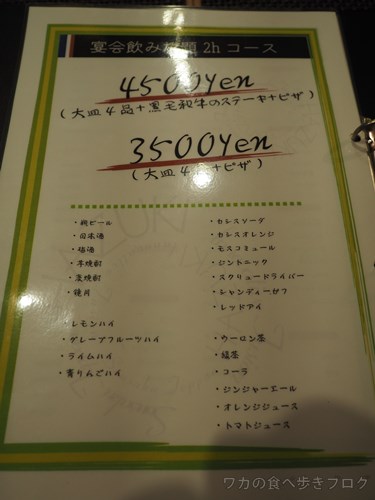 宴会飲み放題 2h コース
4500yen
(大皿4品+黒毛和牛のステーキ+ピザ)
3500yen
(大皿4品+ピザ)
・瓶ビール
・日本酒
・梅酒
・芋焼酎
・麦焼酎
・鏡月
・レモンハイ
・グレープフルーツハイ
・ライムハイ
・青りんごハイ
・カシスソーダ
・カシスオレンジ
・モスコミュール
・ジントニック
・スクリュードライバー
・シャンディーガフ
・レッドアイ
・ウーロン茶
・緑茶
・コーラ
・ジンジャーエール
・オレンジジュース
・トマトジュース
ワカの食べ歩きブログ